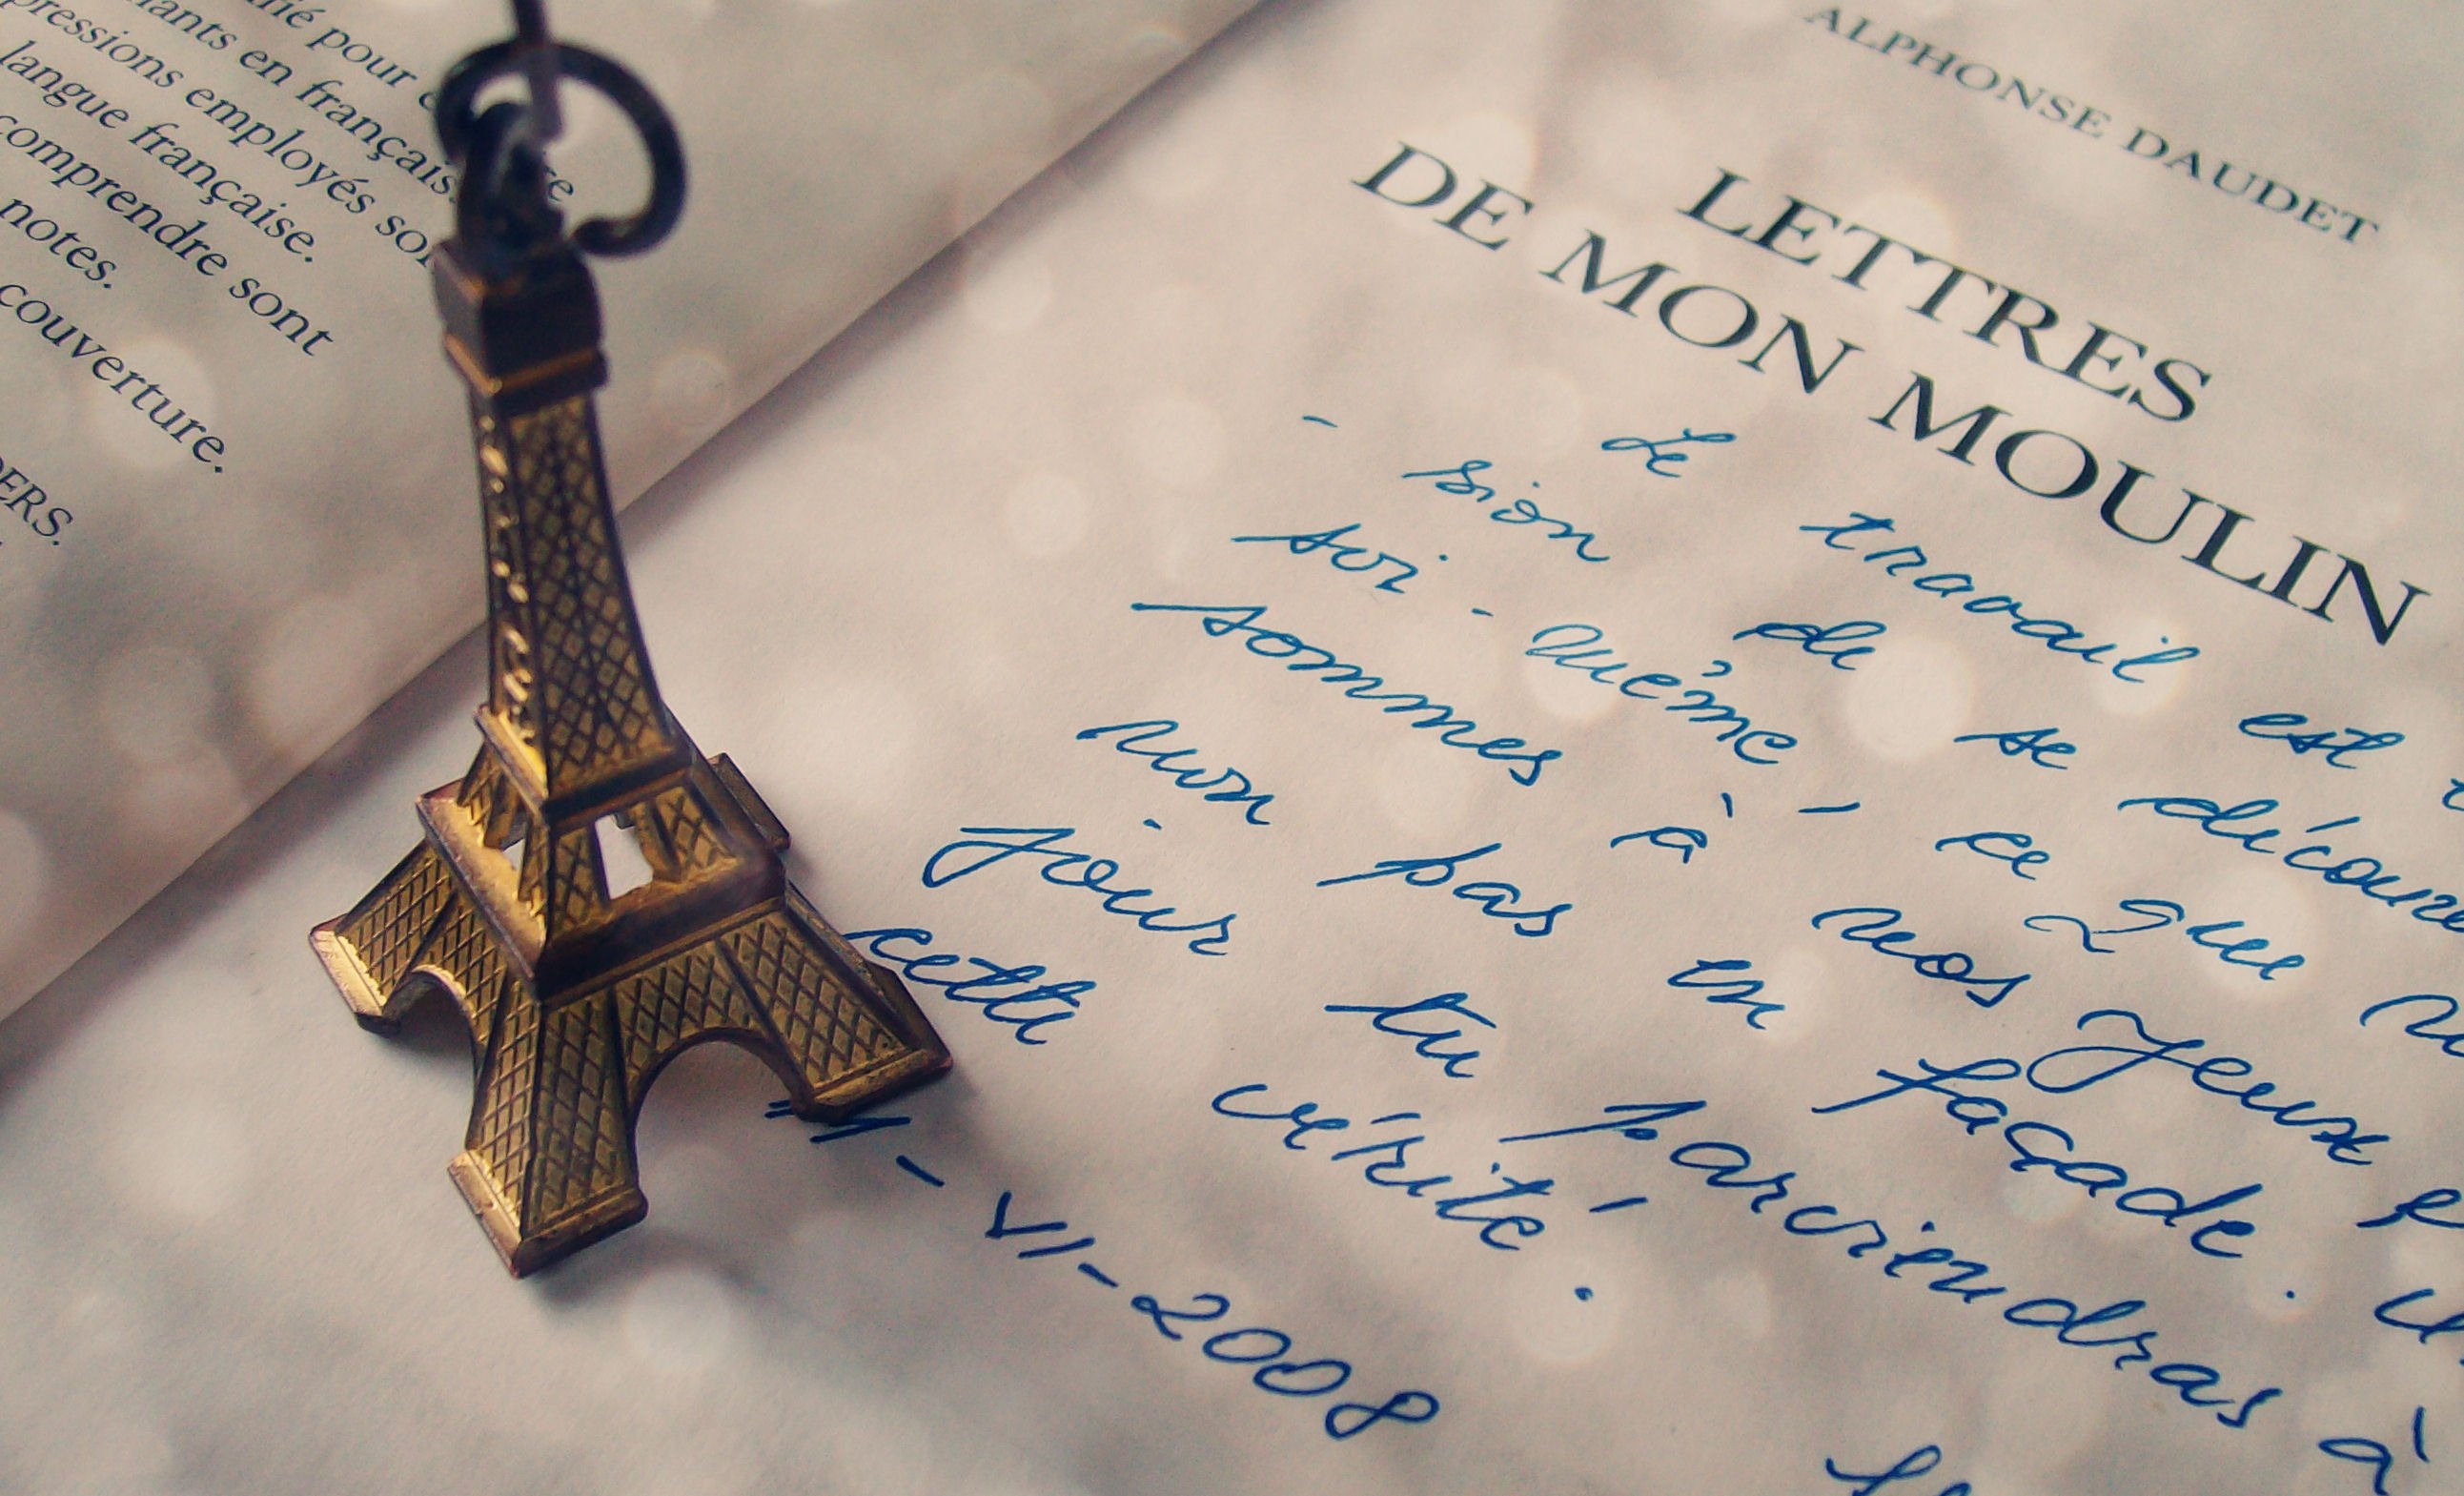 pour
en français.
employés
langue française.
comprendre sont
notes.
couverture.
ALPHONSE DAUDET
LETTRES
DE MON MOULIN
Le travail est
- sion de se décou
soi-même, ce que
sommes à nos yeux
non pas en façade.
jour tu parviendras à
cette vérité.
- VI - 2008